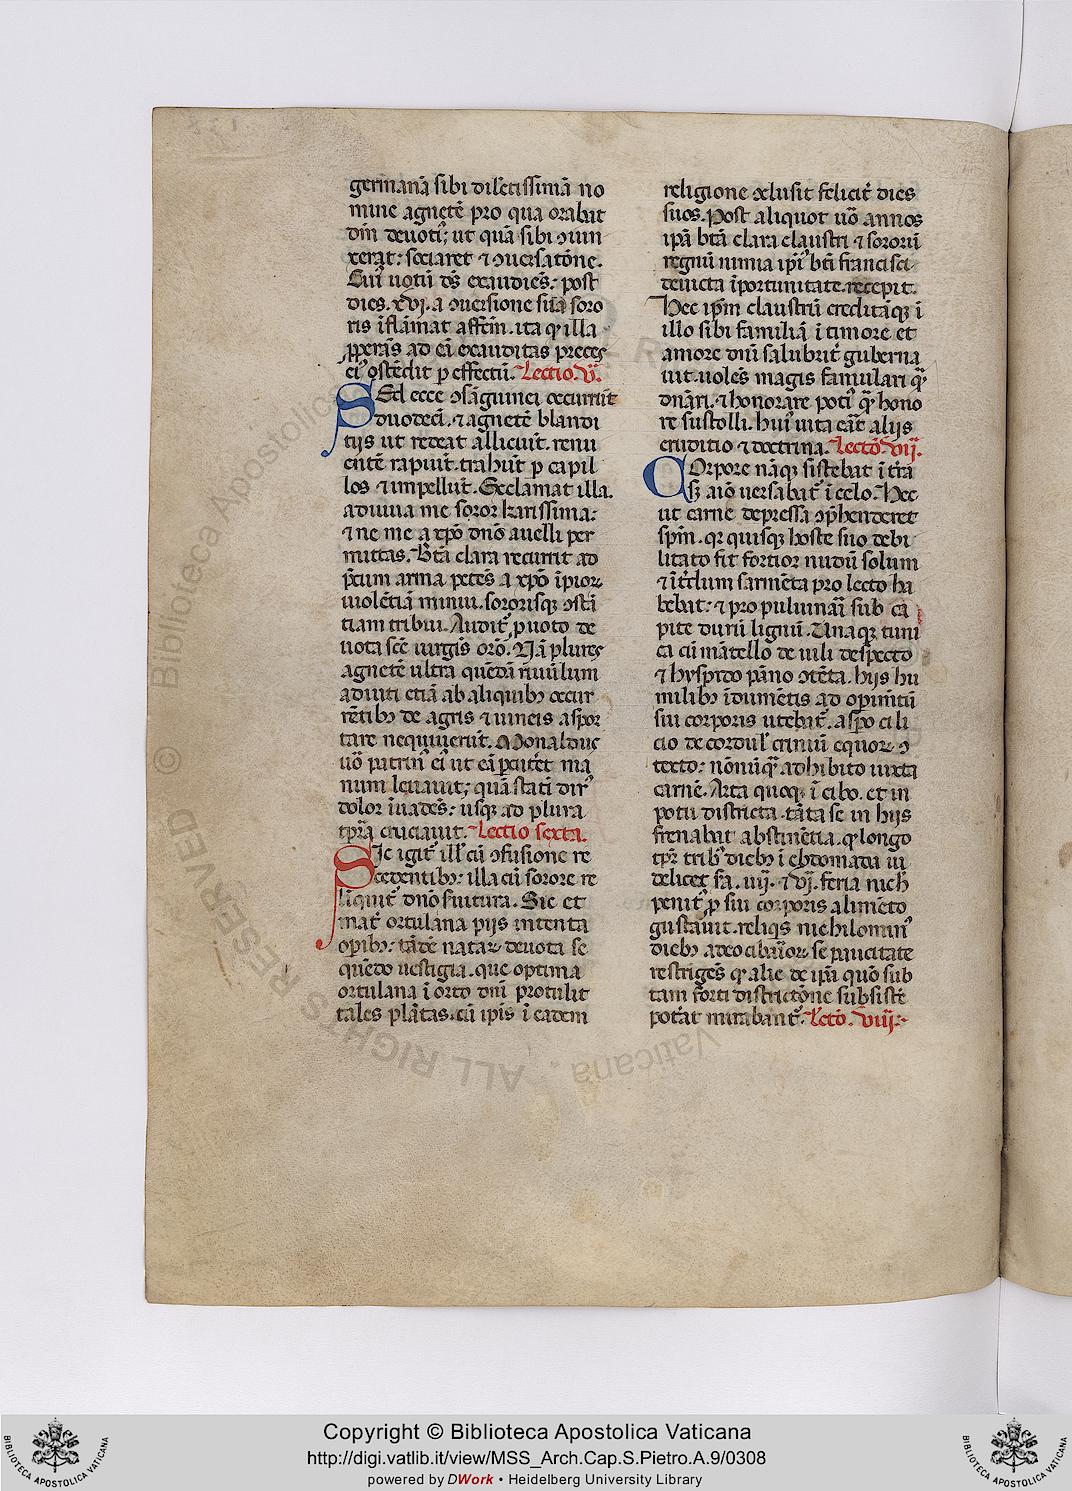 germanā sibi dilectissimā no
mine agnetē pro qua orabat
dm̄ deuoti; ut quā sibi ↄiun
xerat: sociaret ⁊ ↄuersatōne.
Cuiꝰ uotū dš exaudiēs: post
dies. xvj. a ↄuersione suā soro
ris īflāmat affem̄. ita qꝫ illa
ꝓperās ad eā exauditas preces
eiꝰ oštēdit ꝑ effectū. Lectio. v.
Sed ecce ↄsāguinei occurrūt
duodecī. ⁊ agnetē blandi
tijs ut redeat alliciūt. renu
entē rapiūt. trahūt ꝑ capil
los ⁊ impellūt. Exclamat illa.
adiuua me soror karissima:
⁊ ne me a xp̄o dn̄o auelli per
mittas. Bt̄a clara recurrit ad
p̄cum arma petēs a xp̄o īpioꝝ
uiolētiā minui. sororisqꝫ ↄstā
tiam tribui. Auditꝰ, ꝓ uoto de
uota scē uirgīs or̄o. Nā plures
agnetē ultra quēdā riuulum
aduecti etiā ab aliquibꝫ occur
rētibꝫ de agris ⁊ uineis aspor
tare nequiuerūt. Monaldus
uō patruꝰ eiꝰ ut eā ꝑcuteret ma
num leuauit; quā stati dirꝰ
dolor īuadēs: usqꝫ ad plura
tp̄ra cruciauit. Lectio sexta.
Sic igit̄ ill̄ cū ↄfusione re
cedentibꝫ: illa cū sorore re
liquit dn̄o seruitura. Sic et
mat̄ ortulana pijs intenta
opibꝫ: tādē nataꝝ deuota se
quēdo uestigia. que optima
ortulana ī orto dn̄i protulit
tales plātas. cū ip̄is ī eadem
religione ↄclusit felicit̄ dies
suos. Post aliquot uō annos
ip̄a bt̄a clara claustri ⁊ sororū
regnū nimia ip̄iꝰ bt̄i francisci
deuicta īportunitate. recepit.
Hec ip̄m claustrū creditāqꝫ ī
illo sibi familiā ī timore et
amore dn̄i salubrit̄ guberna
uit. uolēs magis famulari qꝫ
dn̄ari. ⁊ honorare potiꝰ qꝫ hono
re sustolli. huiꝰ uita erāt alijs
eruditio ⁊ doctrina. Lectō vij.
Corpore nāqꝫ sistebat ī tr̄a
sꝫ aīo uersabat̄ ī celo. Hec
ut carne depressa ↄp̄henderet
sp̄m. qr quisqꝫ hoste suo debi
litato fit fortior nudū solum
⁊ īt̄dum sarmēta pro lecto ha
bebat: ⁊ pro puluinari sub ca
pite durū lignū. Unaqꝫ tuni
ca cū mātello de uili despecto
⁊ hyspido pāno ↄtēta. hijs hu
milibꝫ īdumētis ad opim̄tū
sui corporis utebat̄. aspo cili
cio de cordul̄ crinium equoꝝ ↄ
texto: nōnūqꝫ adhibito iuxta
carnē. Arta quoqꝫ ī cibo. et in
potu districta. tāta se in hijs
frenabat abstinētia. qꝫ longo
tp̄r tribꝫ diebꝫ ī ebdomada ui
delicet sā. iiij. ⁊ vj. feria nich̄
penit̄ ꝓ sui corporis alimēto
gustauit. reliqs nichilominꝰ
diebꝫ adeo cibarioꝝ se paucitate
restrīgēs qꝫ alie de ip̄a quō sub
tam forti districtōne subsistē
pot̄at mirabant̄. Lctō. viij.
Copyright © Biblioteca Apostolica Vaticana
http://digi.vatlib.it/view/MSS_Arch.Cap.S.Pietro.A.9/0308
powered by DWork • Heidelberg University Library